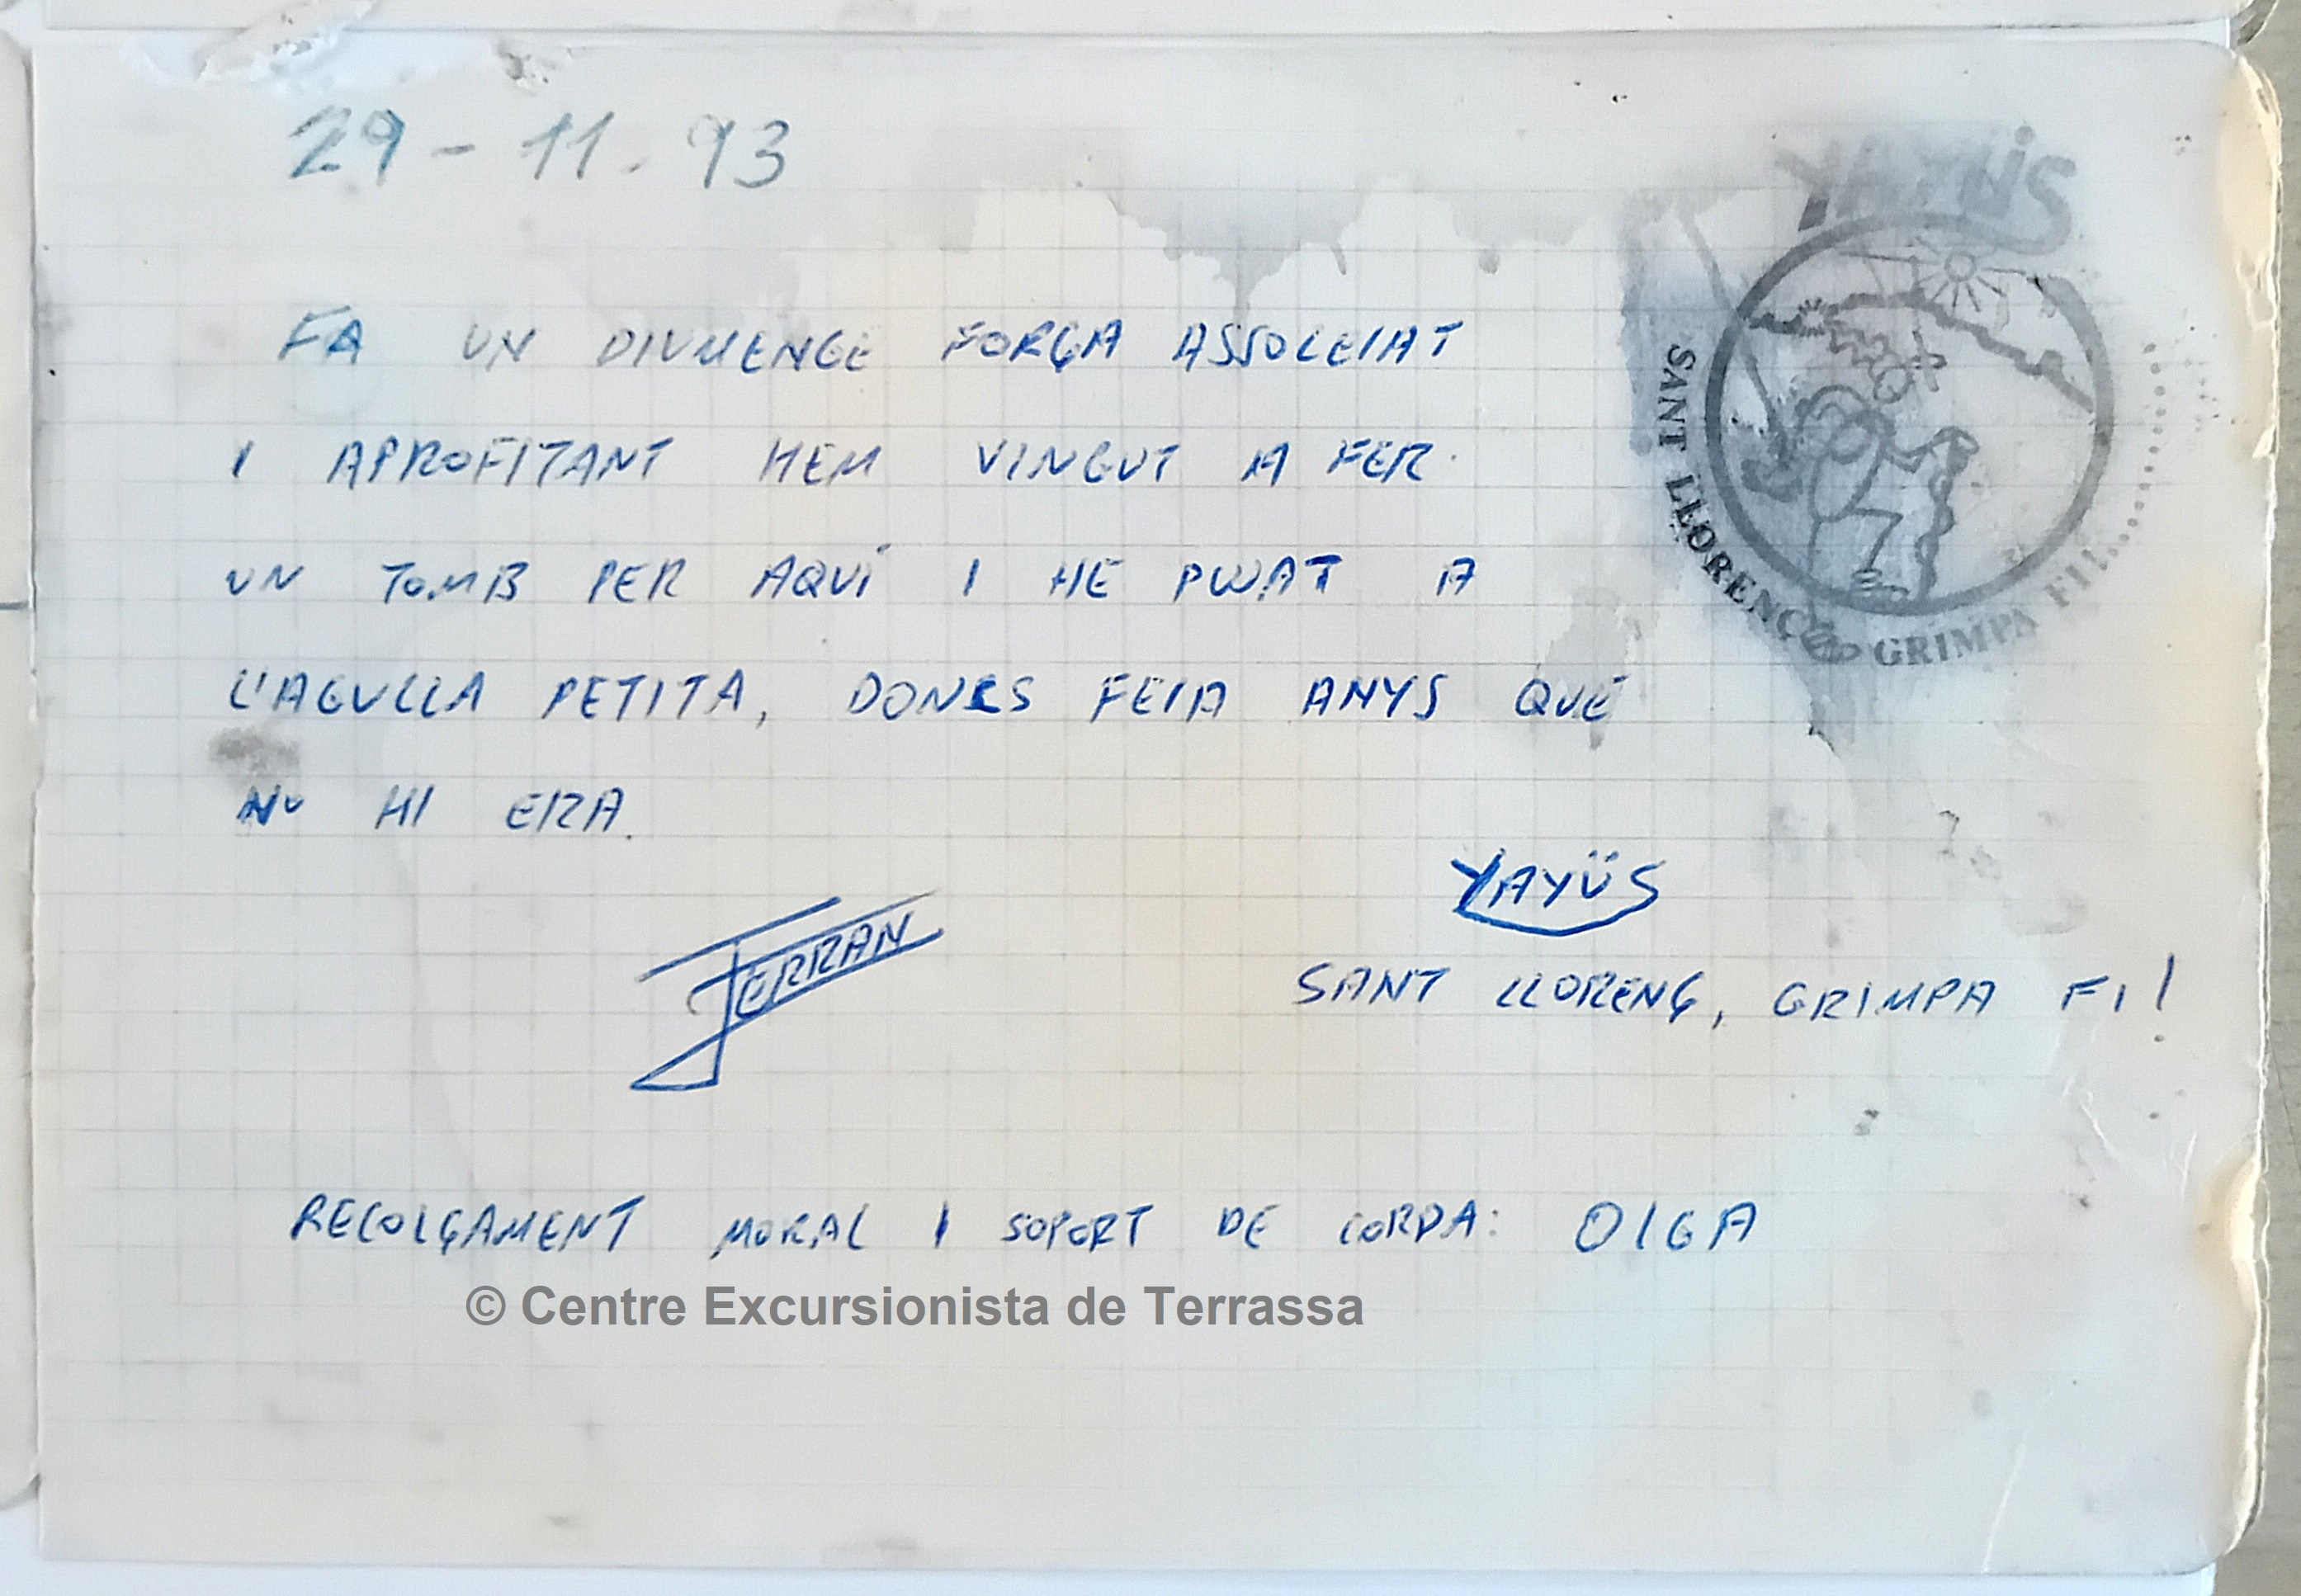 29-11.93
YAYÜS
SANT LLORENÇ GRIMPA FI!!......
FA UN DIUMENGE FORÇA ASSOLEIAT
I APROFITANT HEM VINGUT A FER
UN TOMB PER AQUÍ I HE PUJAT A
L'AGULLA PETITA, DONCS FEIA ANYS QUE
NO HI ERA.
FERRAN
YAYÜS
SANT LLORENÇ, GRIMPA FI!
RECOLÇAMENT MORAL I SOPORT DE CORDA: OLGA
© Centre Excursionista de Terrassa